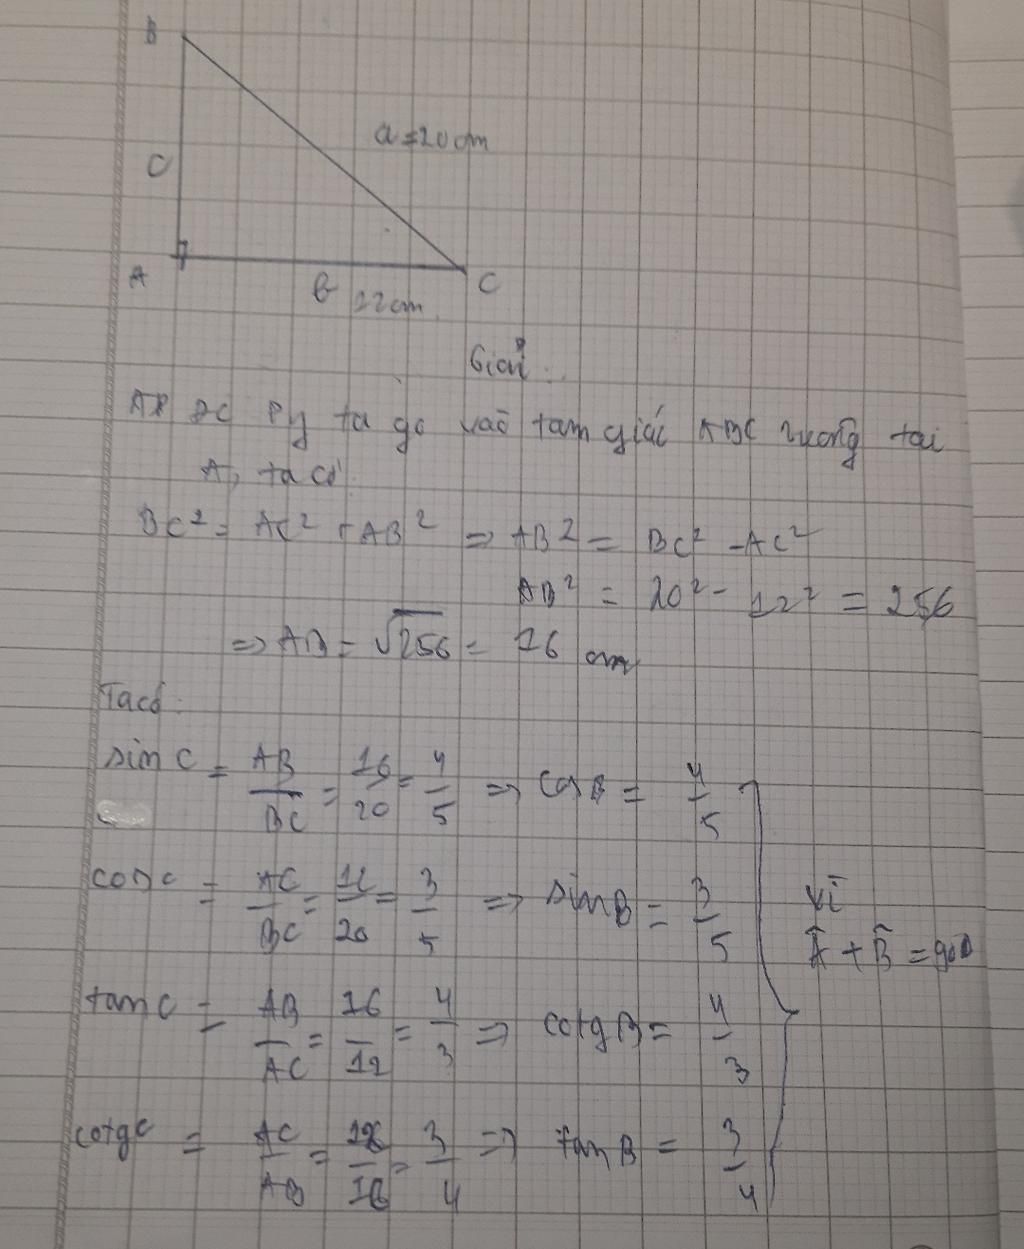 B
a = 20 cm
C
A
b 12cm
C
Giải:
AP DC Py ta go vào tam giác ABC vuông tại
A, ta có:
BC² = AC² + AB² => AB² = BC² - AC²
AB² = 20² - 12² = 256
=> AB = √256 = 16 cm
Ta có:
sin C = AB/BC = 16/20 = 4/5 => cos B = 4/5
cos C = AC/BC = 12/20 = 3/5 => sin B = 3/5
vì
Â + B̂ = 90°
tan C = AB/AC = 16/12 = 4/3 => cotg B = 4/3
cotg C = AC/AB = 12/16 = 3/4 => tan B = 3/4